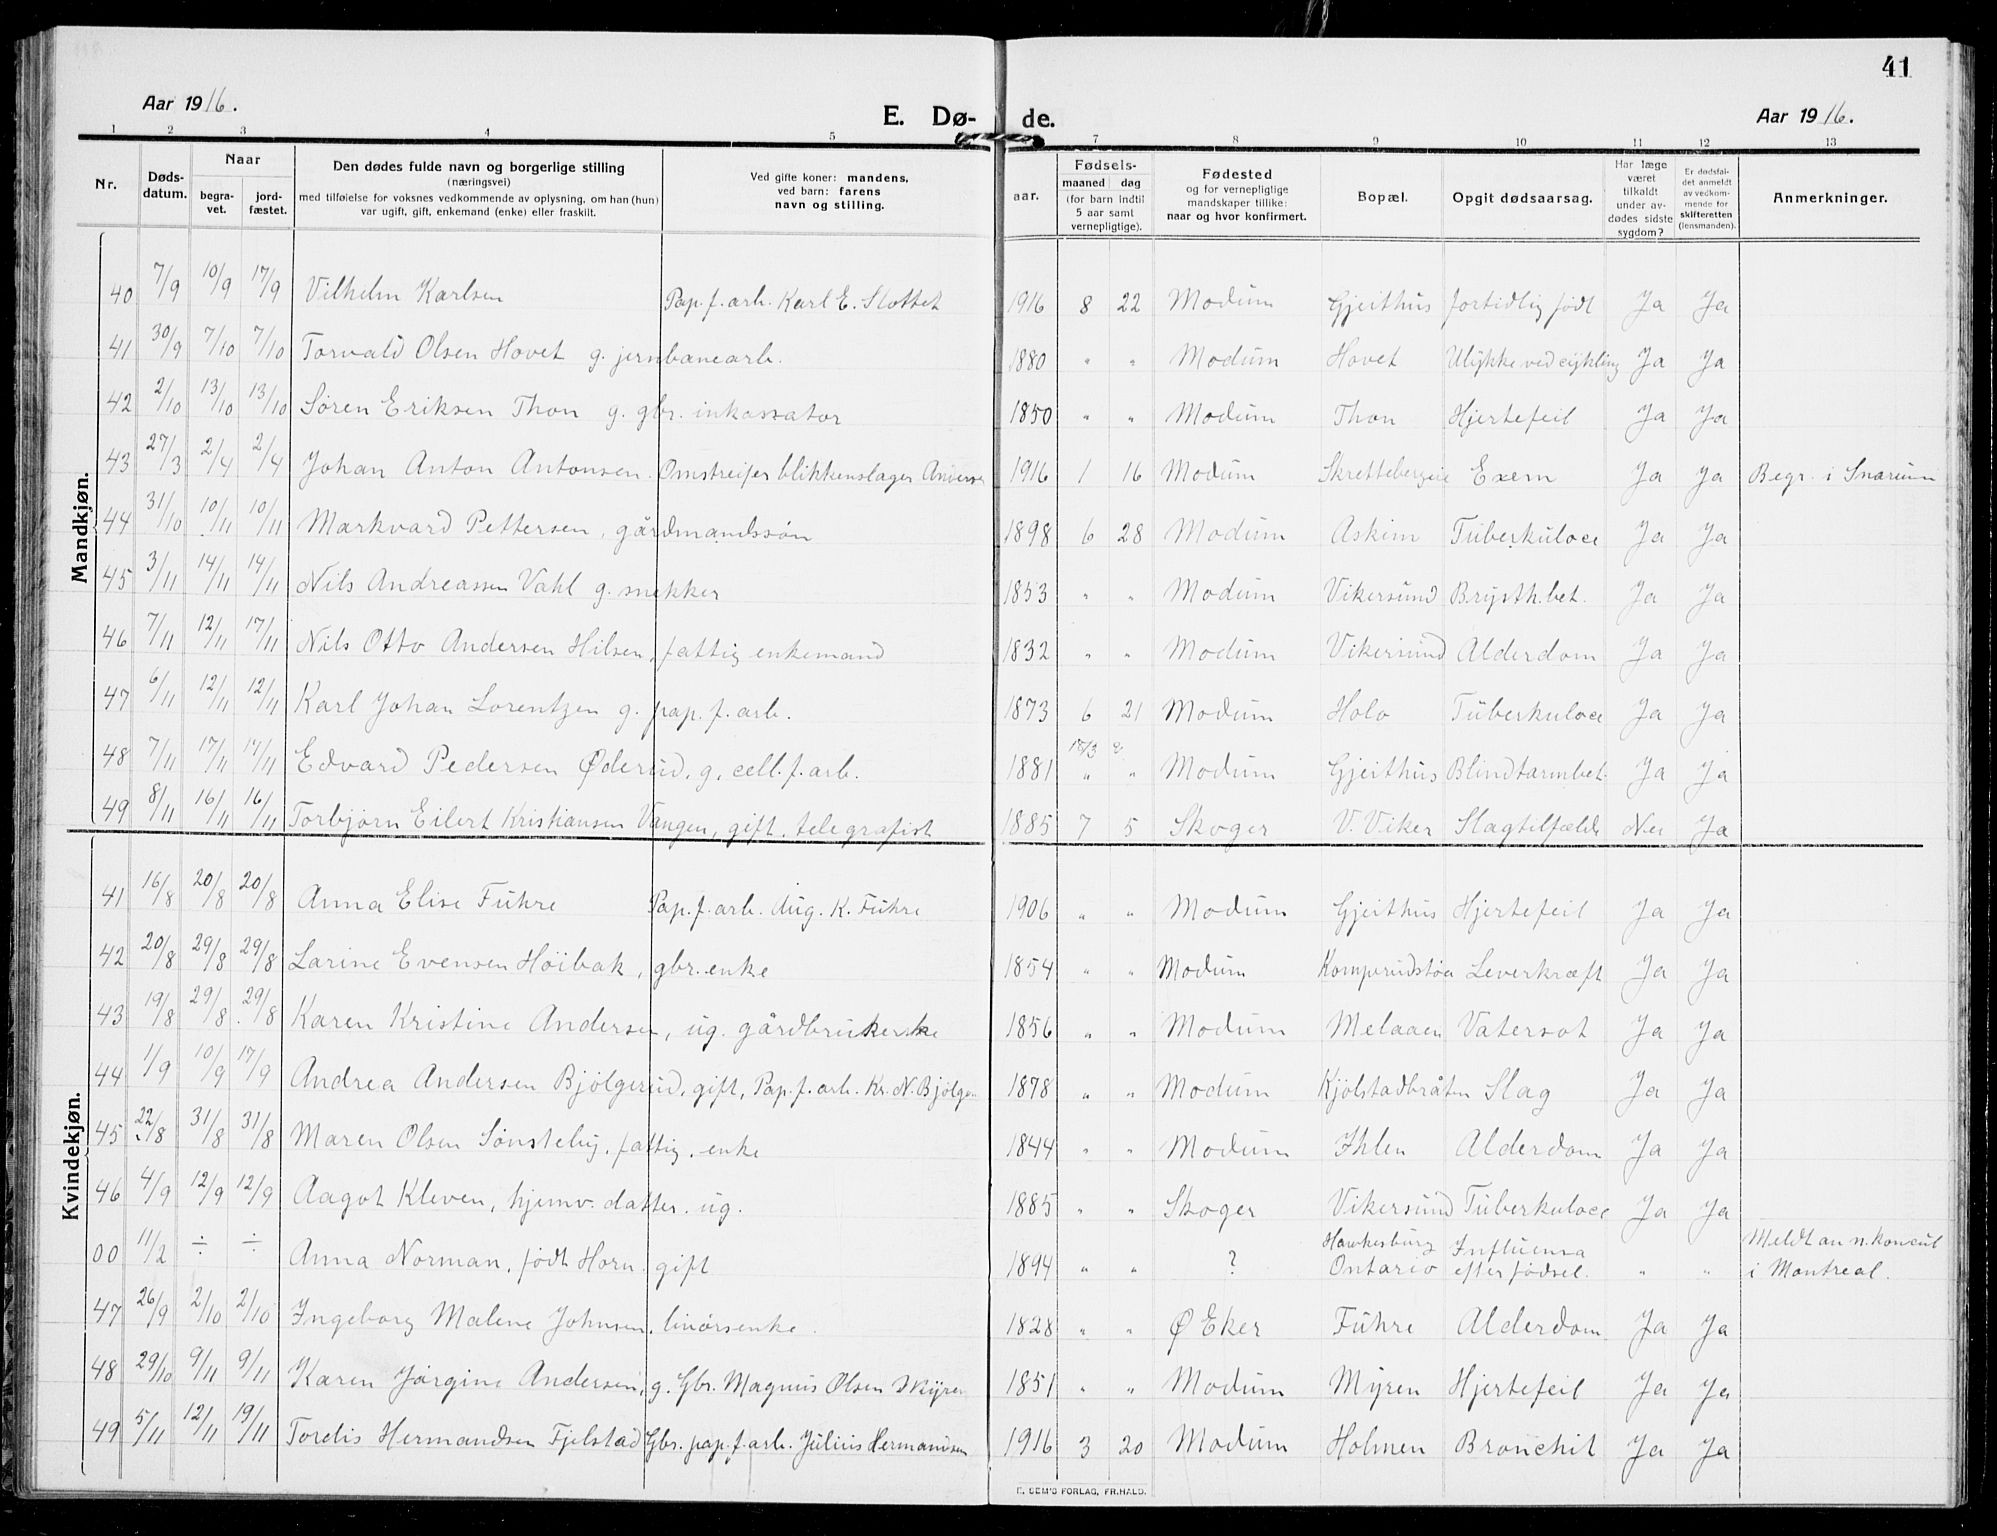 41
Aar 1916. E. Dø- de. Aar 1916.
1 2 3 4 5 7 8 9 10 11 12 13
Nr. Døds-datum. Naar begra-vet. jord-fæstet. Den dødes fulde navn og borgerlige stilling (næringsvei) med tilføielse for voksnes vedkommende av oplysning, om han (hun) var ugift, gift, enkemand (enke) eller fraskilt. Ved gifte koner: mandens, ved barn: farens navn og stilling. aar. Fødsels- maaned dag (for barn indtil 5 aar samt vernepligtige). Fødested og for vernepligtige mandskaper tillike: naar og hvor konfirmert. Bopæl. Opgit dødsaarsag. Har læge været tilkaldt under av-dødes sidste sygdom? Er dødsfal-det anmeldt av vedkom-mende for skifteretten (lensmanden). Anmerkninger.
Mandkjøn.
40 7/9 10/9 17/9 Vilhelm Karlsen Pap.f.arb. Karl E. Slottet 1916 8 22 Modum Gjeithus fortidlig født Ja Ja
41 30/9 7/10 7/10 Torvald Olsen Hovet g. jernbanearb. 1880 " " Modum Hovet Ulykke ved cykling Ja Ja
42 2/10 13/10 13/10 Søren Eriksen Thon g. gbr. inkassator 1850 " " Modum Thon Hjertefeil Ja Ja
43 27/3 2/4 2/4 Johan Anton Antonsen. Omstreifer blikkenslager 1916 1 16 Modum Exem Ja Ja Begr. i Snarum
44 31/10 10/11 10/11 Markvard Pettersen, gårdmandssøn 1898 6 28 Modum Askim Tuberkuloce Ja Ja
45 3/11 14/11 14/11 Nils Andreassen Vahl g. snekker 1853 " " Modum Vikersund Brysth.bet. Ja Ja
46 7/11 12/11 17/11 Nils Otto Andersen Hilsen, fattig enkemand 1832 " " Modum Vikersund Alderdom Ja Ja
47 6/11 12/11 12/11 Karl Johan Lorentzen g. pap.f.arb. 1873 6 21 Modum Holo Tuberkuloce Ja Ja
48 7/11 17/11 17/11 Edvard Pedersen Øderud, g, cell.f.arb. 1881 18/3 " " Modum Gjeithus Blindtarmbet. Ja Ja
49 8/11 16/11 16/11 Torbjørn Eilert Kristiansen Vangen, gift, telegrafist 1885 7 5 Skoger V. Viker Slagtilfælde Nei Ja
Kvindekjøn.
41 16/8 20/8 20/8 Anna Elise Fuhre Pap.f.arb. Aug. K. Fuhre 1906 " " Modum Gjeithus Hjertefeil Ja Ja
42 20/8 29/8 29/8 Larine Evensen Höibak, gbr. enke 1854 " " Modum Leverkræft Ja Ja
43 19/8 29/8 29/8 Karen Kristine Andersen, ug. gårdbrukerske 1856 " " Modum Melaaen Vatersot Ja Ja
44 1/9 10/9 17/9 Andrea Andersen Bjölgerud, gift, Pap.f.arb. Kr. N. Bjölger 1878 " " Modum Kjölstadbråten Slag Ja Ja
45 22/8 31/8 31/8 Maren Olsen Sønsteby, fattig, enke 1844 " " Modum Ihlen Alderdom Ja Ja
46 4/9 12/9 12/9 Aagot Kleven, hjemv. datter, ug. 1885 " " Skoger Vikersund Tuberkuloce Ja Ja
00 11/2 ÷ ÷ Anna Norman, født Horn. gift 1894 " " ? Hawkesbury Ontario Influensa efter fødsel. " " Meldt av n. konsul i Montreal.
47 26/9 2/10 2/10 Ingeborg Malene Johnsen, enke. 1828 " " Ø Eker Fuhre Alderdom Ja Ja
48 29/10 9/11 9/11 Karen Jørgine Andersen, g. Gbr. Magnus Olsen Myren 1851 " " Modum Myren Hjertefeil Ja Ja
49 5/11 12/11 19/11 Tordis Hermandsen Fjelstad Gbr. pap.f.arb. Julius Hermandsen 1916 3 20 Modum Holmen Bronchit Ja Ja
E. SEM'S FORLAG, FR.HALD.